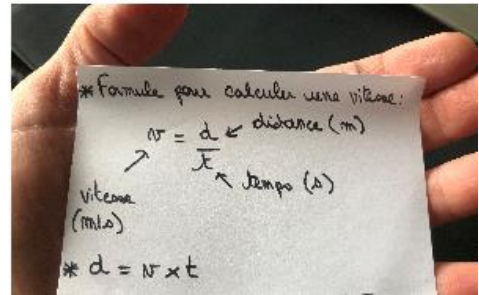 * Formule pour calculer une vitesse :
v = d/t
distance (m)
temps (s)
vitesse
(m/s)
* d = v x t